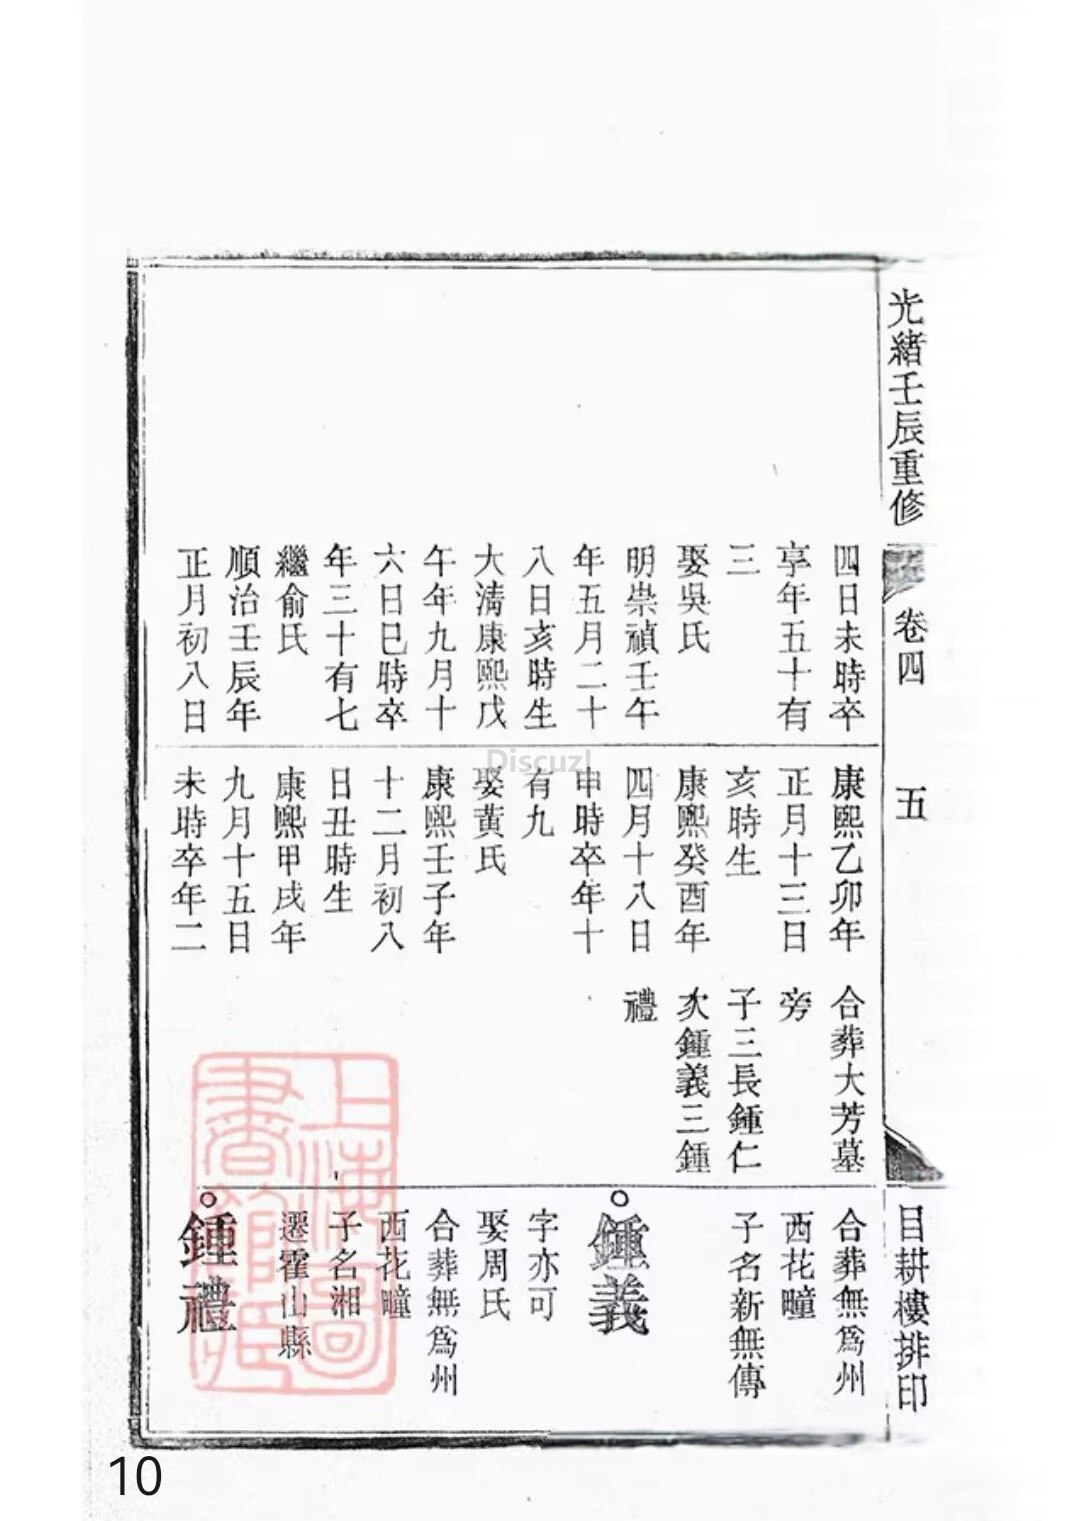 光緒壬辰重修
卷四
五
目耕樓排印
四日未時卒
享年五十有
三
娶吳氏
明崇禎壬午
年五月二十
八日亥時生
大清康熙戊
午年九月十
六日巳時卒
年三十有七
繼俞氏
順治壬辰年
正月初八日
康熙乙卯年
正月十三日
亥時生
康熙癸酉年
四月十八日
申時卒年十
有九
娶黃氏
康熙壬子年
十二月初八
日丑時生
康熙甲戌年
九月十五日
未時卒年二
合葬大芳墓
旁
子三長鍾仁
次鍾義三鍾
禮
合葬無爲州
西花疃
子名新無傳
鍾義
字亦可
娶周氏
合葬無爲州
西花疃
子名湘
遷霍山縣
鍾禮
上海圖
書館藏
Discuz!
10